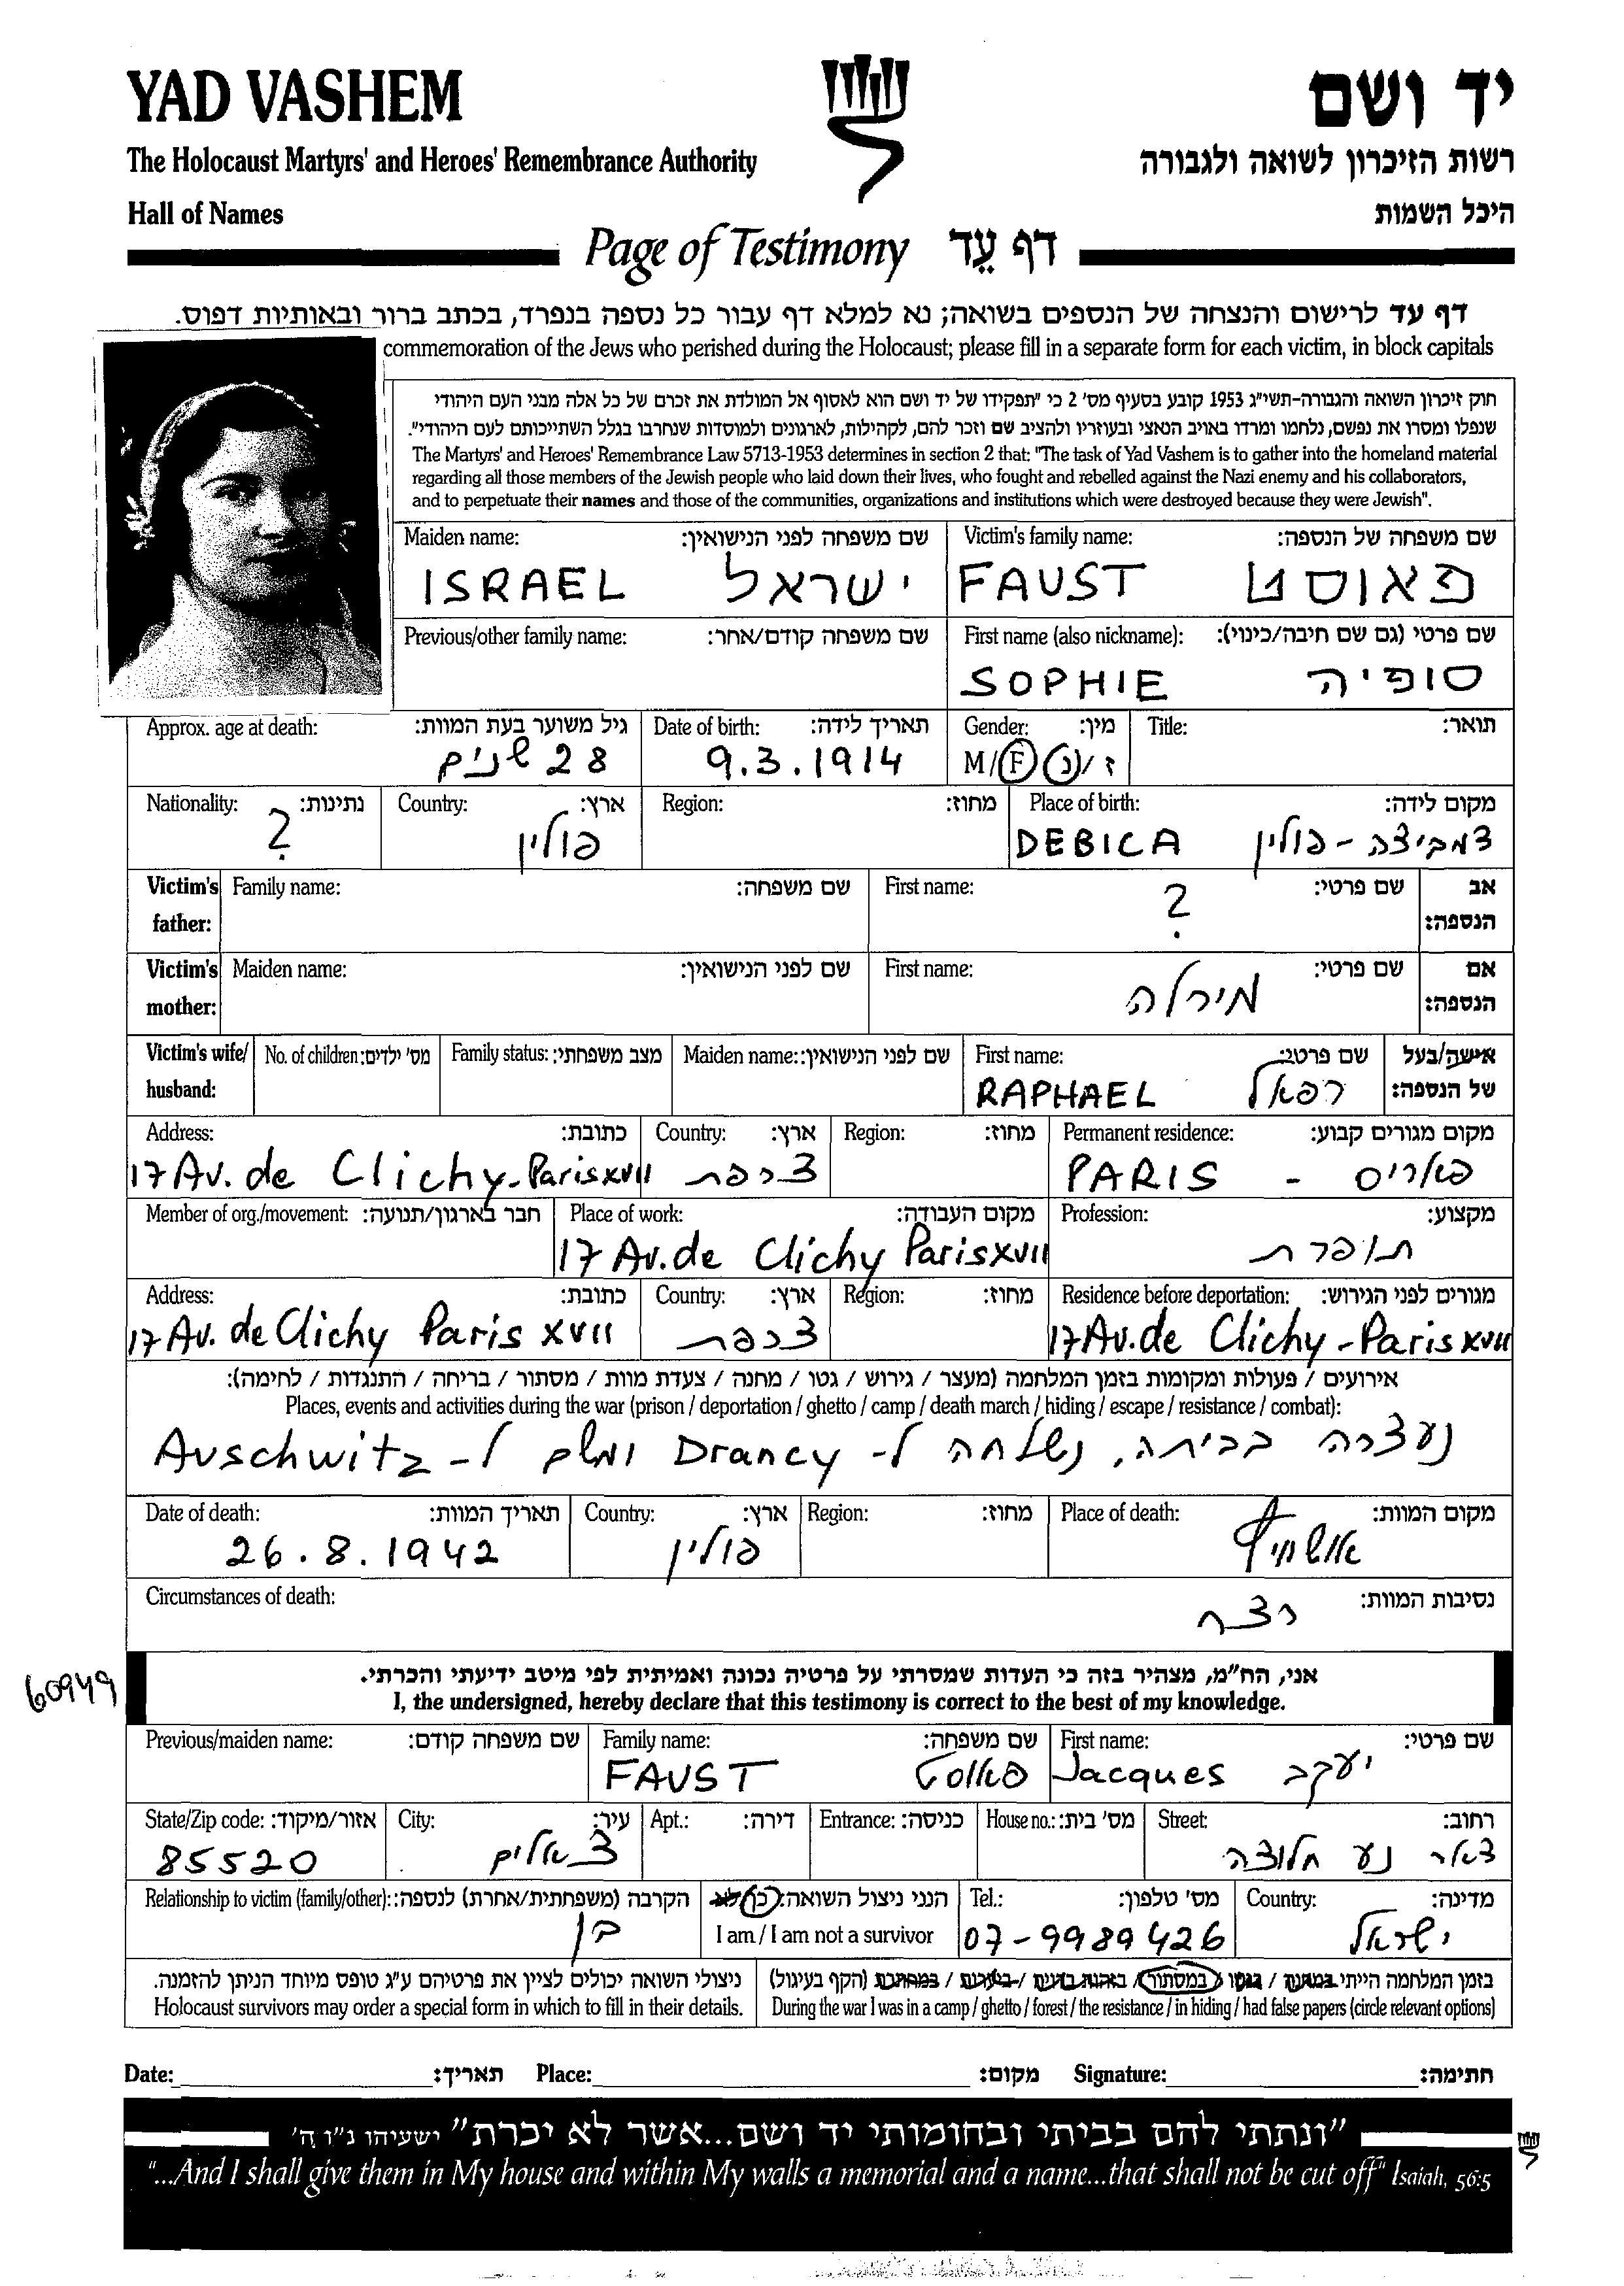 YAD VASHEM
יד ושם
The Holocaust Martyrs' and Heroes' Remembrance Authority
רשות הזיכרון לשואה ולגבורה
Hall of Names
היכל השמות
Page of Testimony דף עֵד
דף עד לרישום והנצחה של הנספים בשואה; נא למלא דף עבור כל נספה בנפרד, בכתב ברור ובאותיות דפוס.
commemoration of the Jews who perished during the Holocaust; please fill in a separate form for each victim, in block capitals
חוק זיכרון השואה והגבורה-תשי"ג 1953 קובע בסעיף מס' 2 כי "תפקידו של יד ושם הוא לאסוף אל המולדת את זכרם של כל אלה מבני העם היהודי
שנפלו ומסרו את נפשם, נלחמו ומרדו באויב הנאצי ובעוזריו ולהציב שם וזכר להם, לקהילות, לארגונים ולמוסדות שנחרבו בגלל השתייכותם לעם היהודי".
The Martyrs' and Heroes' Remembrance Law 5713-1953 determines in section 2 that: "The task of Yad Vashem is to gather into the homeland material
regarding all those members of the Jewish people who laid down their lives, who fought and rebelled against the Nazi enemy and his collaborators,
and to perpetuate their names and those of the communities, organizations and institutions which were destroyed because they were Jewish".
Maiden name: שם משפחה לפני הנישואין: Victim's family name: שם משפחה של הנספה:
ISRAEL ישראל FAUST פאוסט
Previous/other family name: שם משפחה קודם/אחר: First name (also nickname): שם פרטי (גם שם חיבה/כינוי):
SOPHIE סופיה
Approx. age at death: גיל משוער בעת המוות: Date of birth: תאריך לידה: Gender: מין: Title: תואר:
28 שנים 9.3.1914 M/F ז/נ
Nationality: נתינות: Country: ארץ: Region: מחוז: Place of birth: מקום לידה:
? פולין DEBICA דמביצה - פולין
Victim's father: Family name: שם משפחה: First name: שם פרטי: אב הנספה:
?
Victim's mother: Maiden name: שם לפני הנישואין: First name: שם פרטי: אם הנספה:
מירלה
Victim's wife/ husband: No. of children: מס' ילדים: Family status: מצב משפחתי: Maiden name: שם לפני הנישואין: First name: שם פרטי: אישה/בעל של הנספה:
RAPHAEL רפאל
Address: כתובת: Country: ארץ: Region: מחוז: Permanent residence: מקום מגורים קבוע:
17 Av. de Clichy - Paris XVII צרפת PARIS - פאריס
Member of org./movement: חבר בארגון/תנועה: Place of work: מקום העבודה: Profession: מקצוע:
17 Av. de Clichy Paris XVII תופרת
Address: כתובת: Country: ארץ: Region: מחוז: Residence before deportation: מגורים לפני הגירוש:
17 Av. de Clichy Paris XVII צרפת 17 Av. de Clichy - Paris XVII
אירועים / פעולות ומקומות בזמן המלחמה (מעצר / גירוש / גטו / מחנה / צעדת מוות / מסתור / בריחה / התנגדות / לחימה):
Places, events and activities during the war (prison / deportation / ghetto / camp / death march / hiding / escape / resistance / combat):
נעצרה בביתה, נשלחה ל- Drancy ומשם ל- Auschwitz
Date of death: תאריך המוות: Country: ארץ: Region: מחוז: Place of death: מקום המוות:
26.8.1942 פולין
Circumstances of death: נסיבות המוות:
רצח
60949
אני, הח"מ, מצהיר בזה כי העדות שמסרתי על פרטיה נכונה ואמיתית לפי מיטב ידיעתי והכרתי.
I, the undersigned, hereby declare that this testimony is correct to the best of my knowledge.
Previous/maiden name: שם משפחה קודם: Family name: שם משפחה: First name: שם פרטי:
FAUST פאוסט Jacques יעקב
State/Zip code: אזור/מיקוד: City: עיר: Apt.: דירה: Entrance: כניסה: House no.: מס' בית: Street: רחוב:
85520 צאלים דאר נע חלוצה
Relationship to victim (family/other): הקרבה (משפחתית/אחרת) לנספה: הנני ניצול השואה: כן/לא Tel.: מס' טלפון: Country: מדינה:
בן I am / I am not a survivor 07-9989426 ישראל
ניצולי השואה יכולים לציין את פרטיהם ע"ג טופס מיוחד הניתן להזמנה. בזמן המלחמה הייתי במחנה / בגטו / במסתור / ביערות / במחתרת (הקף בעיגול)
Holocaust survivors may order a special form in which to fill in their details. During the war I was in a camp / ghetto / forest / the resistance / in hiding / had false papers (circle relevant options)
Date: תאריך: Place: מקום: Signature: חתימה:
"ונתתי להם בביתי ובחומותי יד ושם...אשר לא יכרת" ישעיהו נ"ו ה'
"...And I shall give them in My house and within My walls a memorial and a name...that shall not be cut off" Isaiah, 56:5